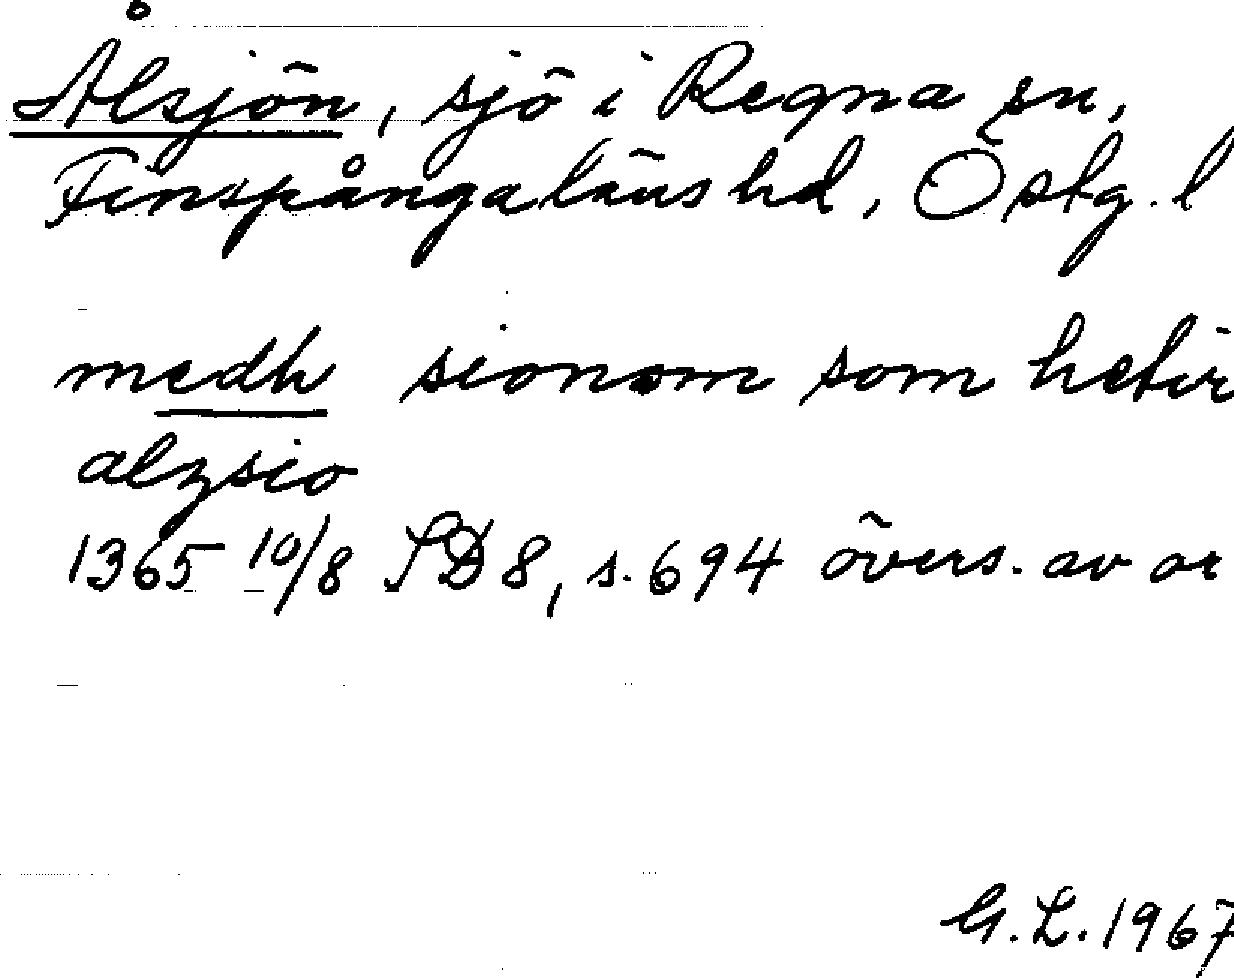 Ålsjön, sjö i Regna sn,
Finspångaläns hd, Östg. l
medh sionom som hetir
alzsio
1365 10/8 SD 8, s. 694 övers. av or
G. L. 1967